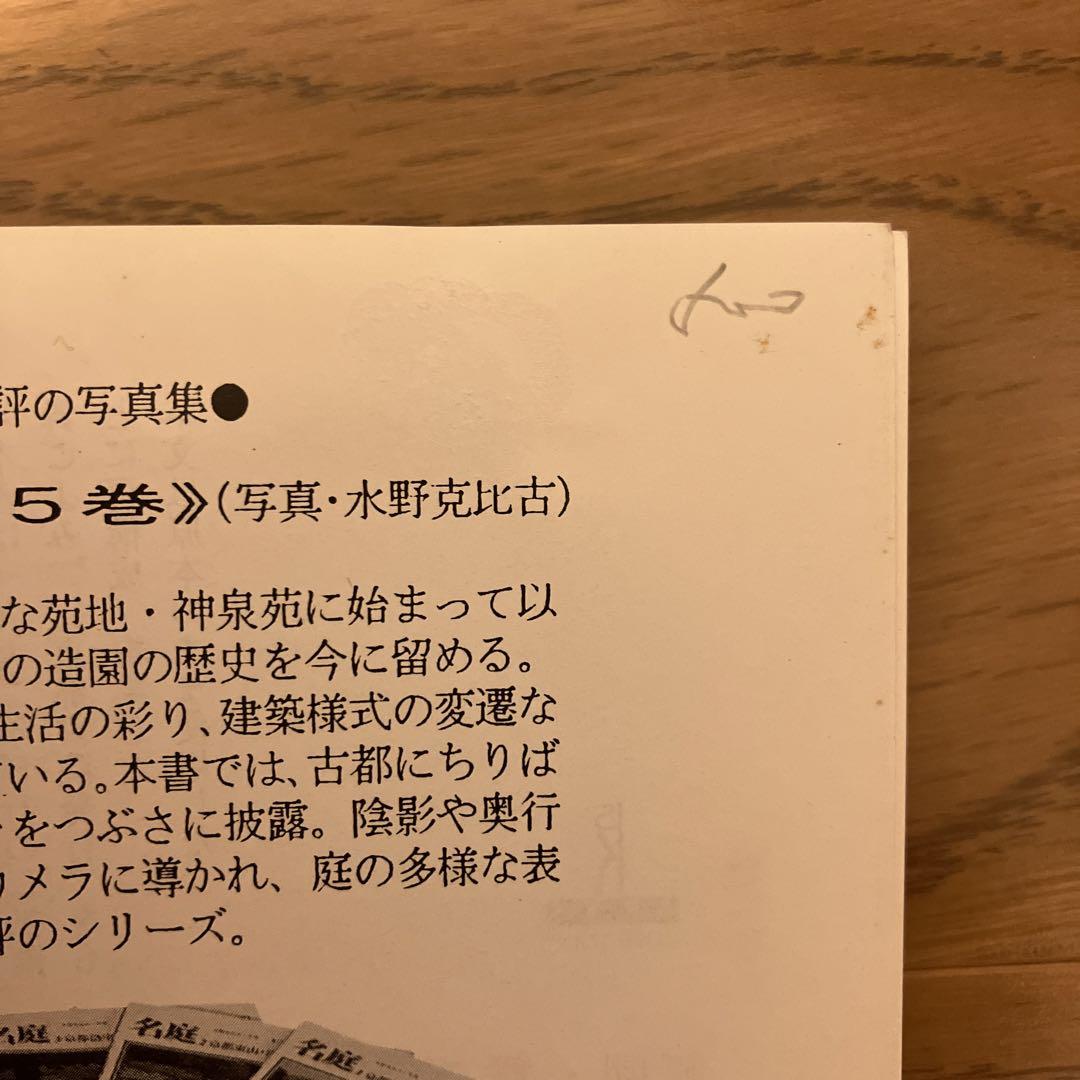 評の写真集●
5巻》(写真・水野克比古)
な苑地・神泉苑に始まって以
の造園の歴史を今に留める。
生活の彩り、建築様式の変遷な
いる。本書では、古都にちりば
をつぶさに披露。陰影や奥行
カメラに導かれ、庭の多様な表
評のシリーズ。
名庭
名庭
名庭